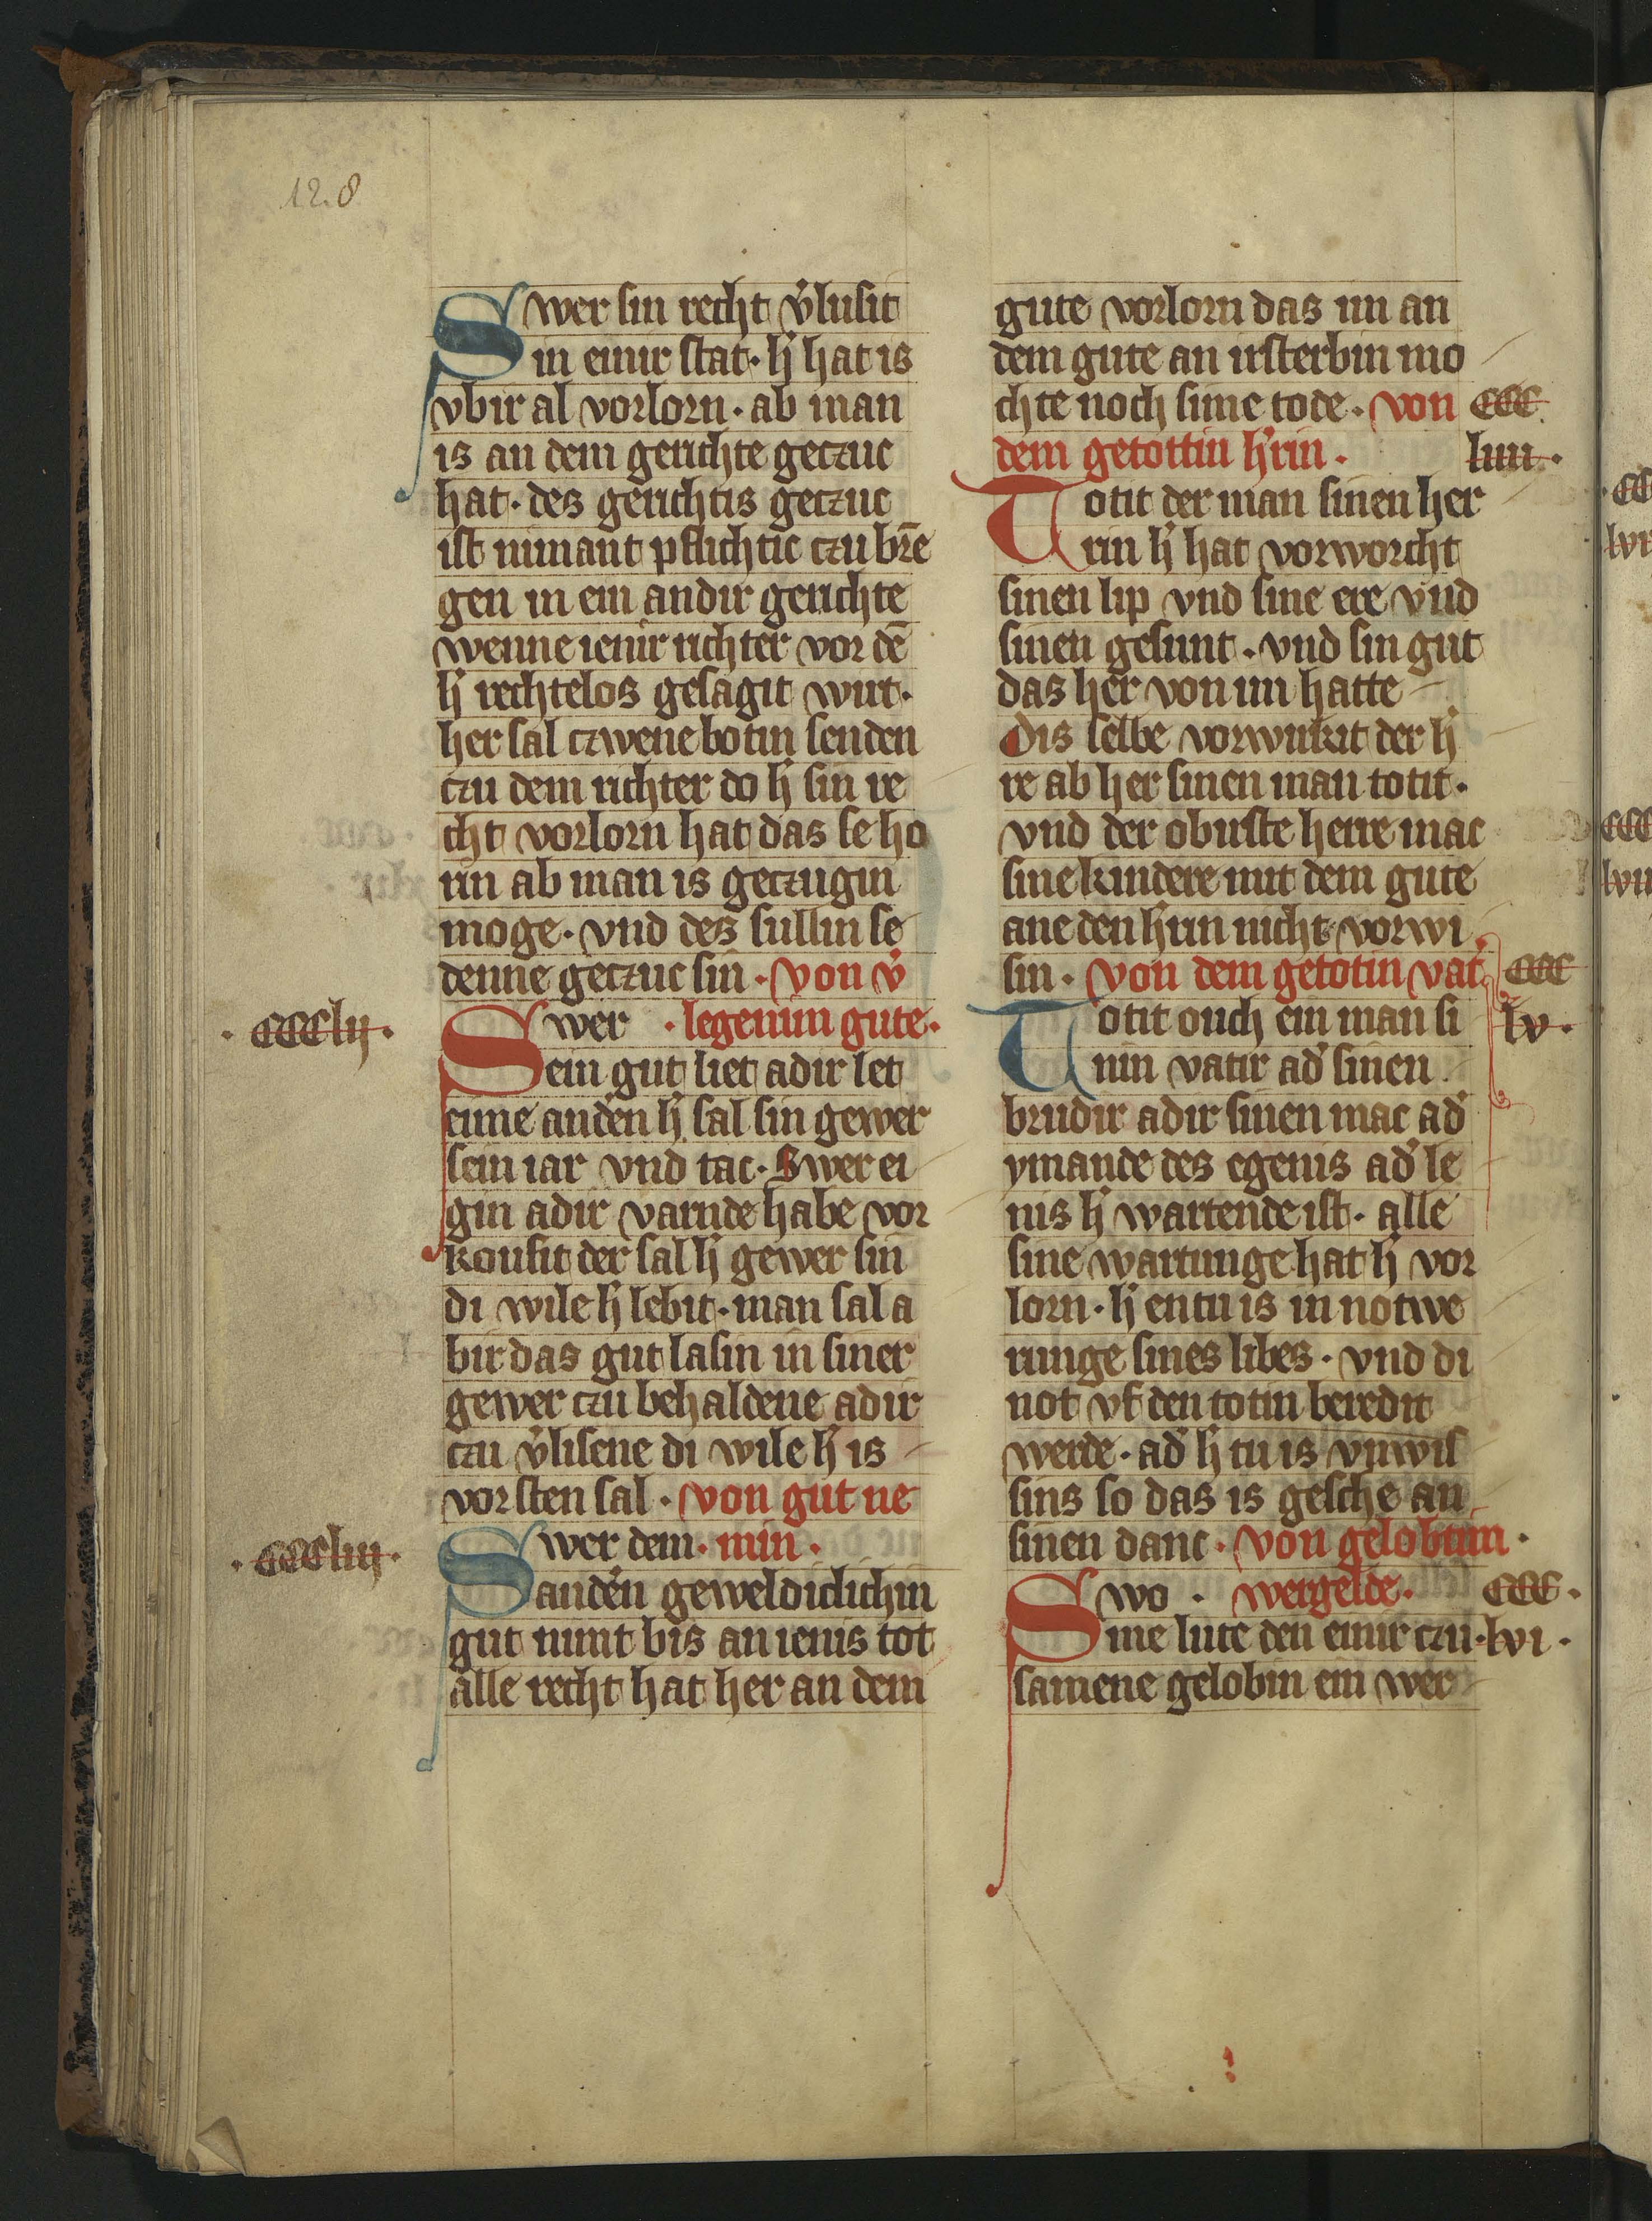 128
Swer sin recht v̓lusit
in einir stat· h̓ hat is
vbir al vorlorn· ab man
is an dem gerichte geczuc
hat· des gerichtis geczuc
ist nimant pflichtic czu bre̅
gen in ein andir gerichte
wenne ienir richter vor de̅
h̓ rechtelos gesagit wirt·
her sal czwene botin senden
czu dem richter do h̓ sin re
cht vorlorn hat das se ho
rin ab man is geczugin
moge· vnd des sullin se
denne geczuc sin· von v̓
·CCClij· Swer ·legenim gute·
ein gut liet adir let
eime and̓en h̓ sal sin gewer
sein iar vnd tac· Swer ei
gin adir varnde habe vor
koufit der sal h̓ gewer sin
di wile h̓ lebit· man sal a
bir das gut lasin in siner
gewer czu behaldene adir
czu v̓lisene di wile h̓ is
vorsten sal· von gut ne
·CCCliij· Swer dem· min·
and̓en geweldiclichin
gut nimt bis an ienis tot
alle recht hat her an dem
gute vorlorn das im an
dem gute an irsterbin mo
chte noch sime tode· von CCC
dem getottin h̓rin· liiii·
Totit der man sinen her
rin h̓ hat vorworcht
sinen lip vnd sine ere vnd
sinen gesunt· vnd sin gut
das her von im hatte
Dis selbe vorwirkit der h̓
re ab her sinen man totit·
vnd der obirste herre mac
sine kindere mit dem gute
ane den h̓rin nicht vorwi
sin· von dem getotin vat̓ CCC
Totit ouch ein man si lv·
nin vatir ad̓ sinen
brudir adir sinen mac ad̓
ymande des egenis ad̓ le
nis h̓ wartende ist· alle
sine wartunge hat h̓ vor
lorn· h̓ entu is in notwe
runge sines libes· vnd di
not vf den totin beredit
werde· ad̓ h̓ tu is vnwis
sins so das is gesche an
sinen danc· von gelobtim·
Swo· wergelde· CCC·
me lute den einir czu· lvi·
samene gelobin ein wer